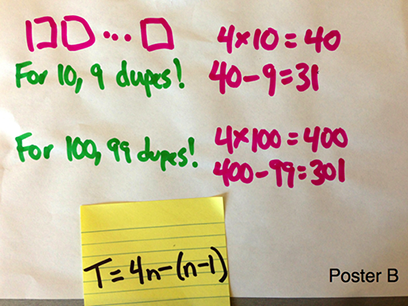 4×10=40
For 10, 9 dupes!
40-9=31
For 100, 99 dupes!
4×100=400
400-99=301
T=4n-(n-1)
Poster B